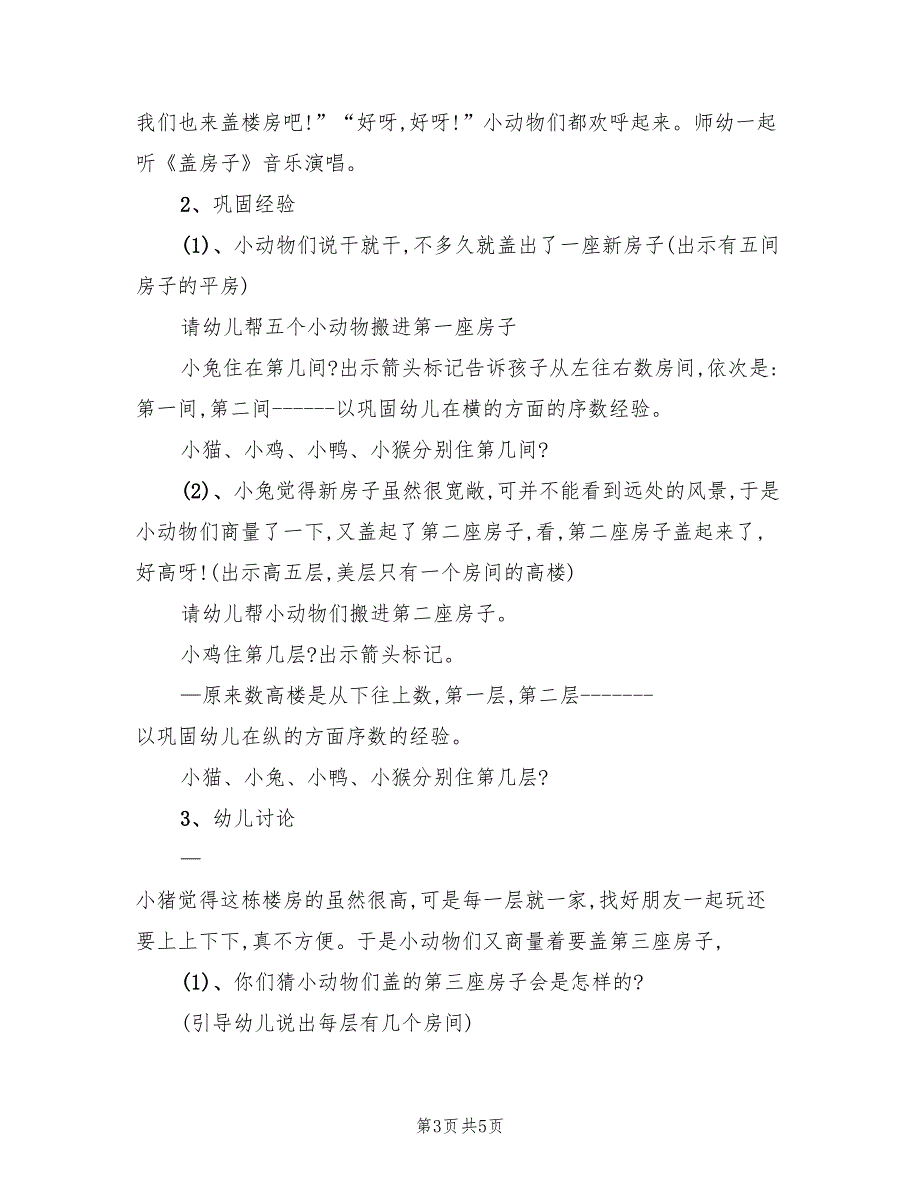 我们也来盖楼房吧!”“好呀,好呀!”小动物们都欢呼起来。师幼一起
听《盖房子》音乐演唱。
2、巩固经验
(1)、小动物们说干就干,不多久就盖出了一座新房子(出示有五间
房子的平房)
请幼儿帮五个小动物搬进第一座房子
小兔住在第几间?出示箭头标记告诉孩子从左往右数房间,依次是:
第一间,第二间------以巩固幼儿在横的方面的序数经验。
小猫、小鸡、小鸭、小猴分别住第几间?
(2)、小兔觉得新房子虽然很宽敞,可并不能看到远处的风景,于是
小动物们商量了一下,又盖起了第二座房子,看,第二座房子盖起来了,
好高呀!(出示高五层,美层只有一个房间的高楼)
请幼儿帮小动物们搬进第二座房子。
小鸡住第几层?出示箭头标记。
—原来数高楼是从下往上数,第一层,第二层-------
以巩固幼儿在纵的方面序数的经验。
小猫、小兔、小鸭、小猴分别住第几层?
3、幼儿讨论
—
小猪觉得这栋楼房的虽然很高,可是每一层就一家,找好朋友一起玩还
要上上下下,真不方便。于是小动物们又商量着要盖第三座房子,
(1)、你们猜小动物们盖的第三座房子会是怎样的?
(引导幼儿说出每层有几个房间)
第3页 共5页